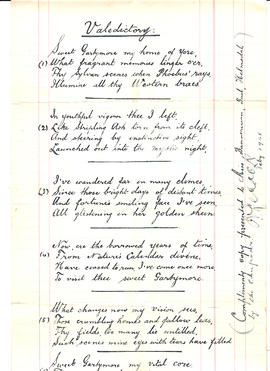 Valedictory:
Sweet Gartymore my home of yore,
(1) What fragrant memories linger o'er,
Thy Sylvan scenes when Phoebus' rays,
Illumine all thy Western braes
In youthful vigour thee I left,
(2) Like stripling Moh torn from its cleft,
And steering by instinctive sight,
Launched out into the mystic night,
I've wandered far in many climes,
(3) Since those bright days of distant times,
And fortune's smiling face I've seen,
All glistening in her golden sheen
Now, are the borrowed years of time,
(4) From Nature's Calendar divine,
Have ceased to run I've come once more,
To visit thee sweet Gartymore.
What changes now my vision sees,
(5) Those crumbling homes and fallow leas,
Thy fields so many lie untilled,
Such scenes mine eyes with tears have filled
Sweet Gartymore, my vital core
(Complimentary copy presented to Miss